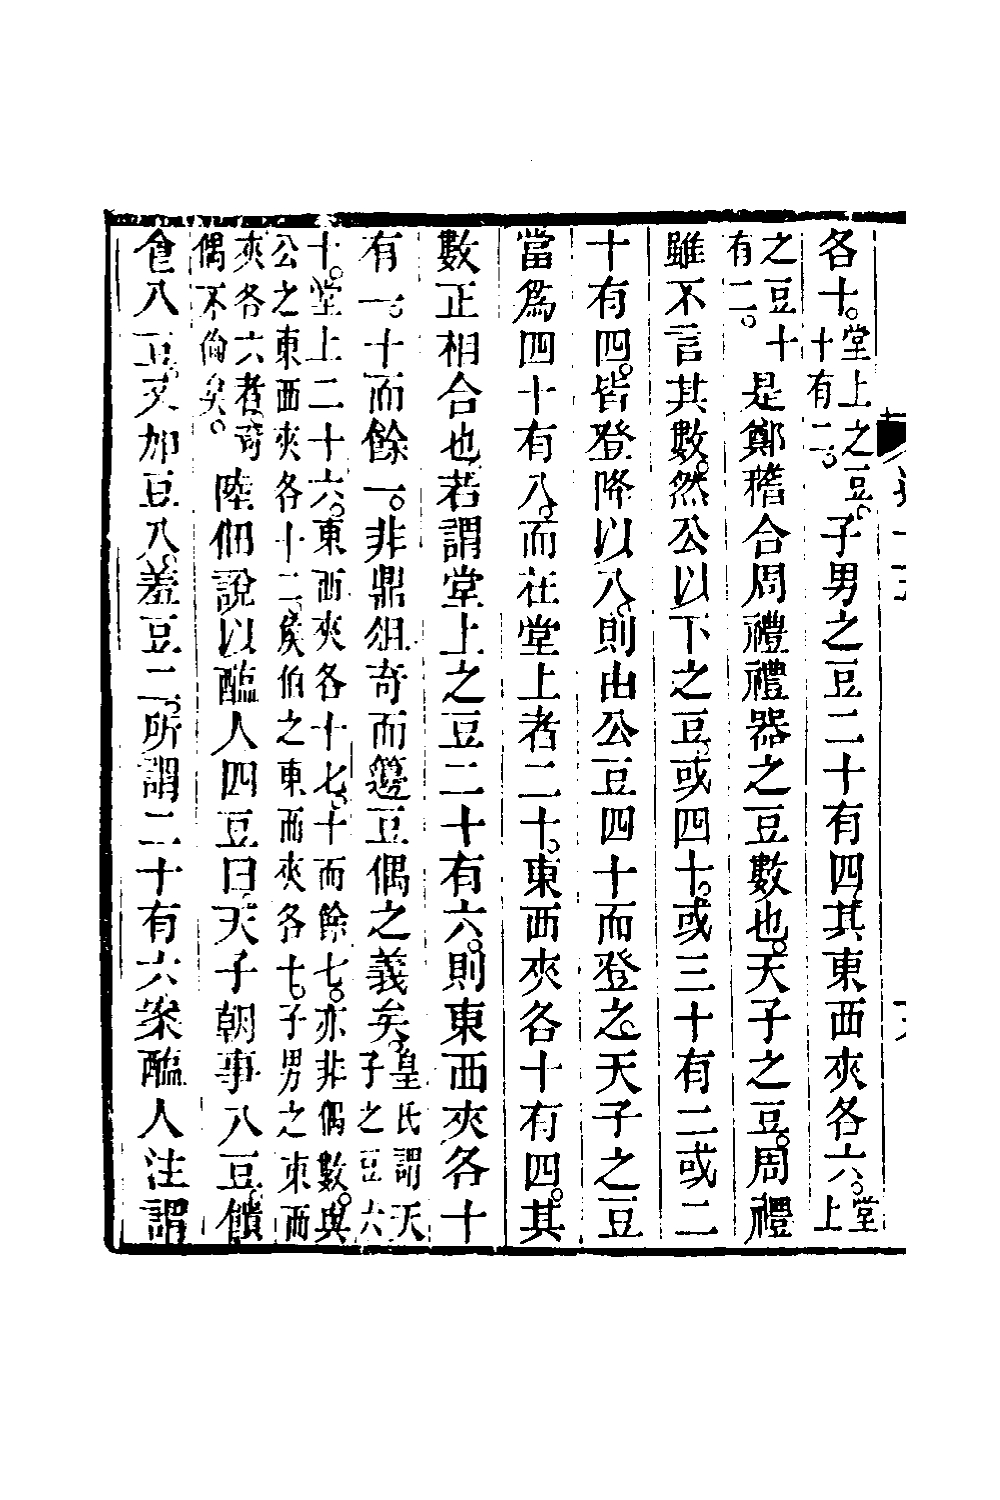 各十。堂上之豆。十有二。子男之豆二十有四其東西夾各六。堂上
之豆十有二。是鄭稽合周禮禮器之豆數也。天子之豆。周禮
雖不言其數。然公以下之豆。或四十。或三十有二或二
十有四。皆登降以八。則由公豆四十而登之。天子之豆
當爲四十有八。而在堂上者二十。東西夾各十有四。其
數正相合也若謂堂上之豆二十有六。則東西夾各十
有一。十而餘一。非鼎俎奇而籩豆偶之義矣。皇氏謂天子之豆六
十。堂上二十六。東西夾各十七。十而餘七。亦非偶數。與
公之東西夾各十二。侯伯之東西夾各十。子男之東西
夾各六者。奇偶不倫矣。陸佃說以醢人四豆曰。天子朝事八豆。饋
食八豆。又加豆八。羞豆二。所謂二十有六案醢人注謂